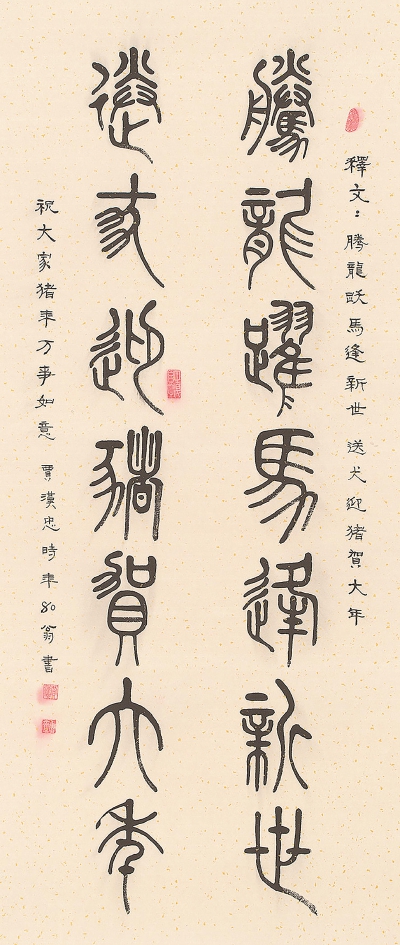 釋文：騰龍跃馬逢新世 送犬迎猪賀大年
騰龍躍馬逢新世
送犬迎豬賀大年
祝大家猪年万事如意 賈漢忠時年80翁書